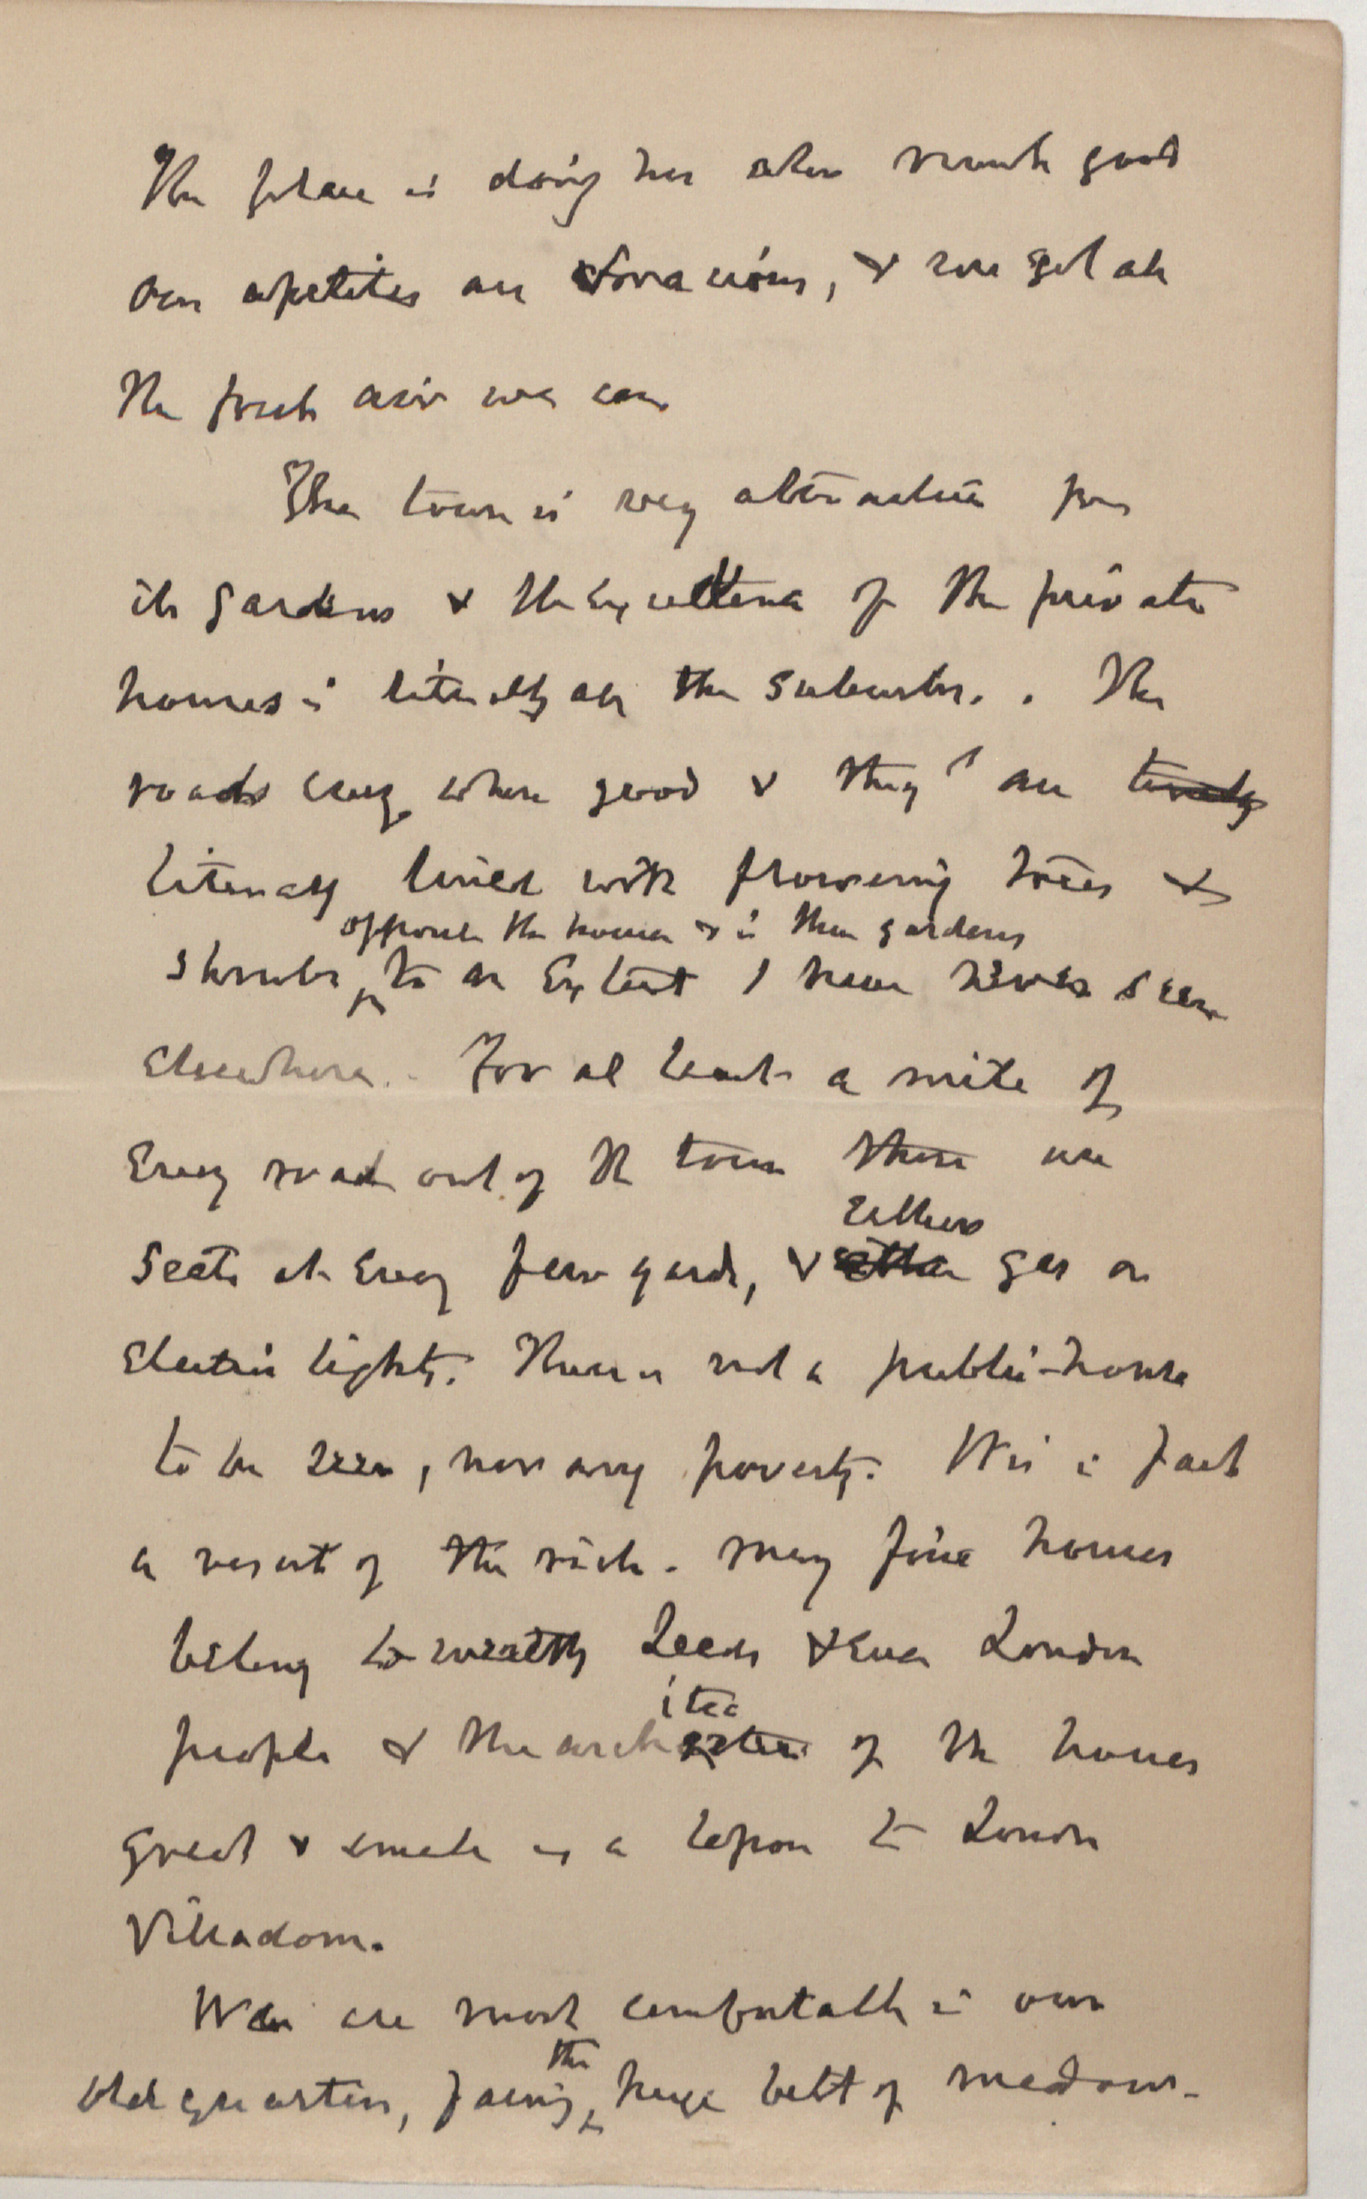 The place is doing her also much good
Our apetites are voracious, & we get all
the fresh air we can
The town is very attractive for
its gardens & the excellence of the private
houses in literally all the suburbs. . The
roads every where good & they are
literally lined with flowering trees &
opposite the houses & in their gardens
shrubs, to an extent I have never seen
elsewhere. For at least a mile of
every road out of the town there are
either
seats at every few yards, & either gas or
electric lights. There is not a public-house
to be seen, nor any poverty. It is in fact
a resort of the rich. Many fine houses
belong to wealthy Leeds & even London
people & the arch of the houses
great & small is a lesson to London
Villadom.
We are most comfortable in our
the
old quarters, facing huge belt of meadow-